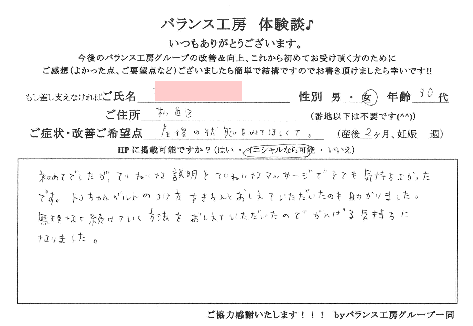 バランス工房 体験談♪
いつもありがとうございます。
今後のバランス工房グループの改善&向上、これから初めてお受け頂く方のために
ご感想(よかった点、ご要望点など)ございましたら簡単で結構ですのでお書き頂けましたら幸いです!!
もし差し支えなければご氏名 性別 男・女 年齢 30 代
ご住所 (番地以下は不要です(^^))
ご症状・改善ご希望点 産後の状態をみてほしくて。 (産後 2ヶ月、妊娠 週)
HPに掲載可能ですか?(はい・イニシャルなら可能・いいえ)
初めてでしたが、ていねいな説明とていねいなマッサージでとても気持ちよかった
です。赤ちゃんがいるの 方もきちんとおしえていただいたのも助かりました。
無理なく続けていく方法をおしえていただいたのでがんばる気持ちに
なりました。
ご協力感謝いたします!!! byバランス工房グループ一同